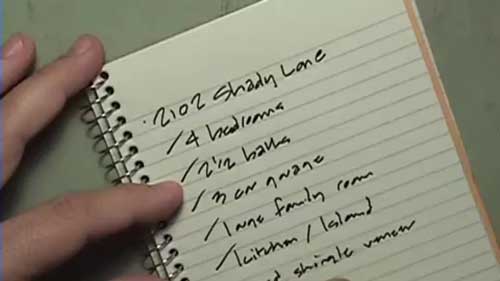 · 2102 Shady Lane
/ 4 bedrooms
/ 2 1/2 baths
/ 3 car garage
/ large family room
/ kitchen / Island
shingle veneer